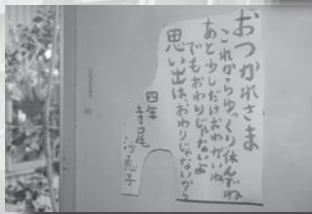 おつかれさま
これからゆっくり休んでね
あと少しだけおわかれね
でもおわりじゃないよ
思い出は、おわりじゃないから
四年
寺尾
沙恵子